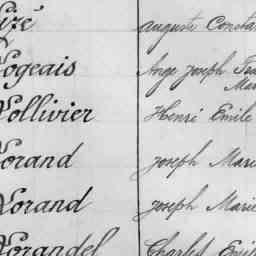 izé auguste Consta
Logeais Ange Joseph Fra
Mar
Lollivier Henri Emile
Lorand Joseph Marie
Lorand Joseph Marie
Lorandel Charles Emil